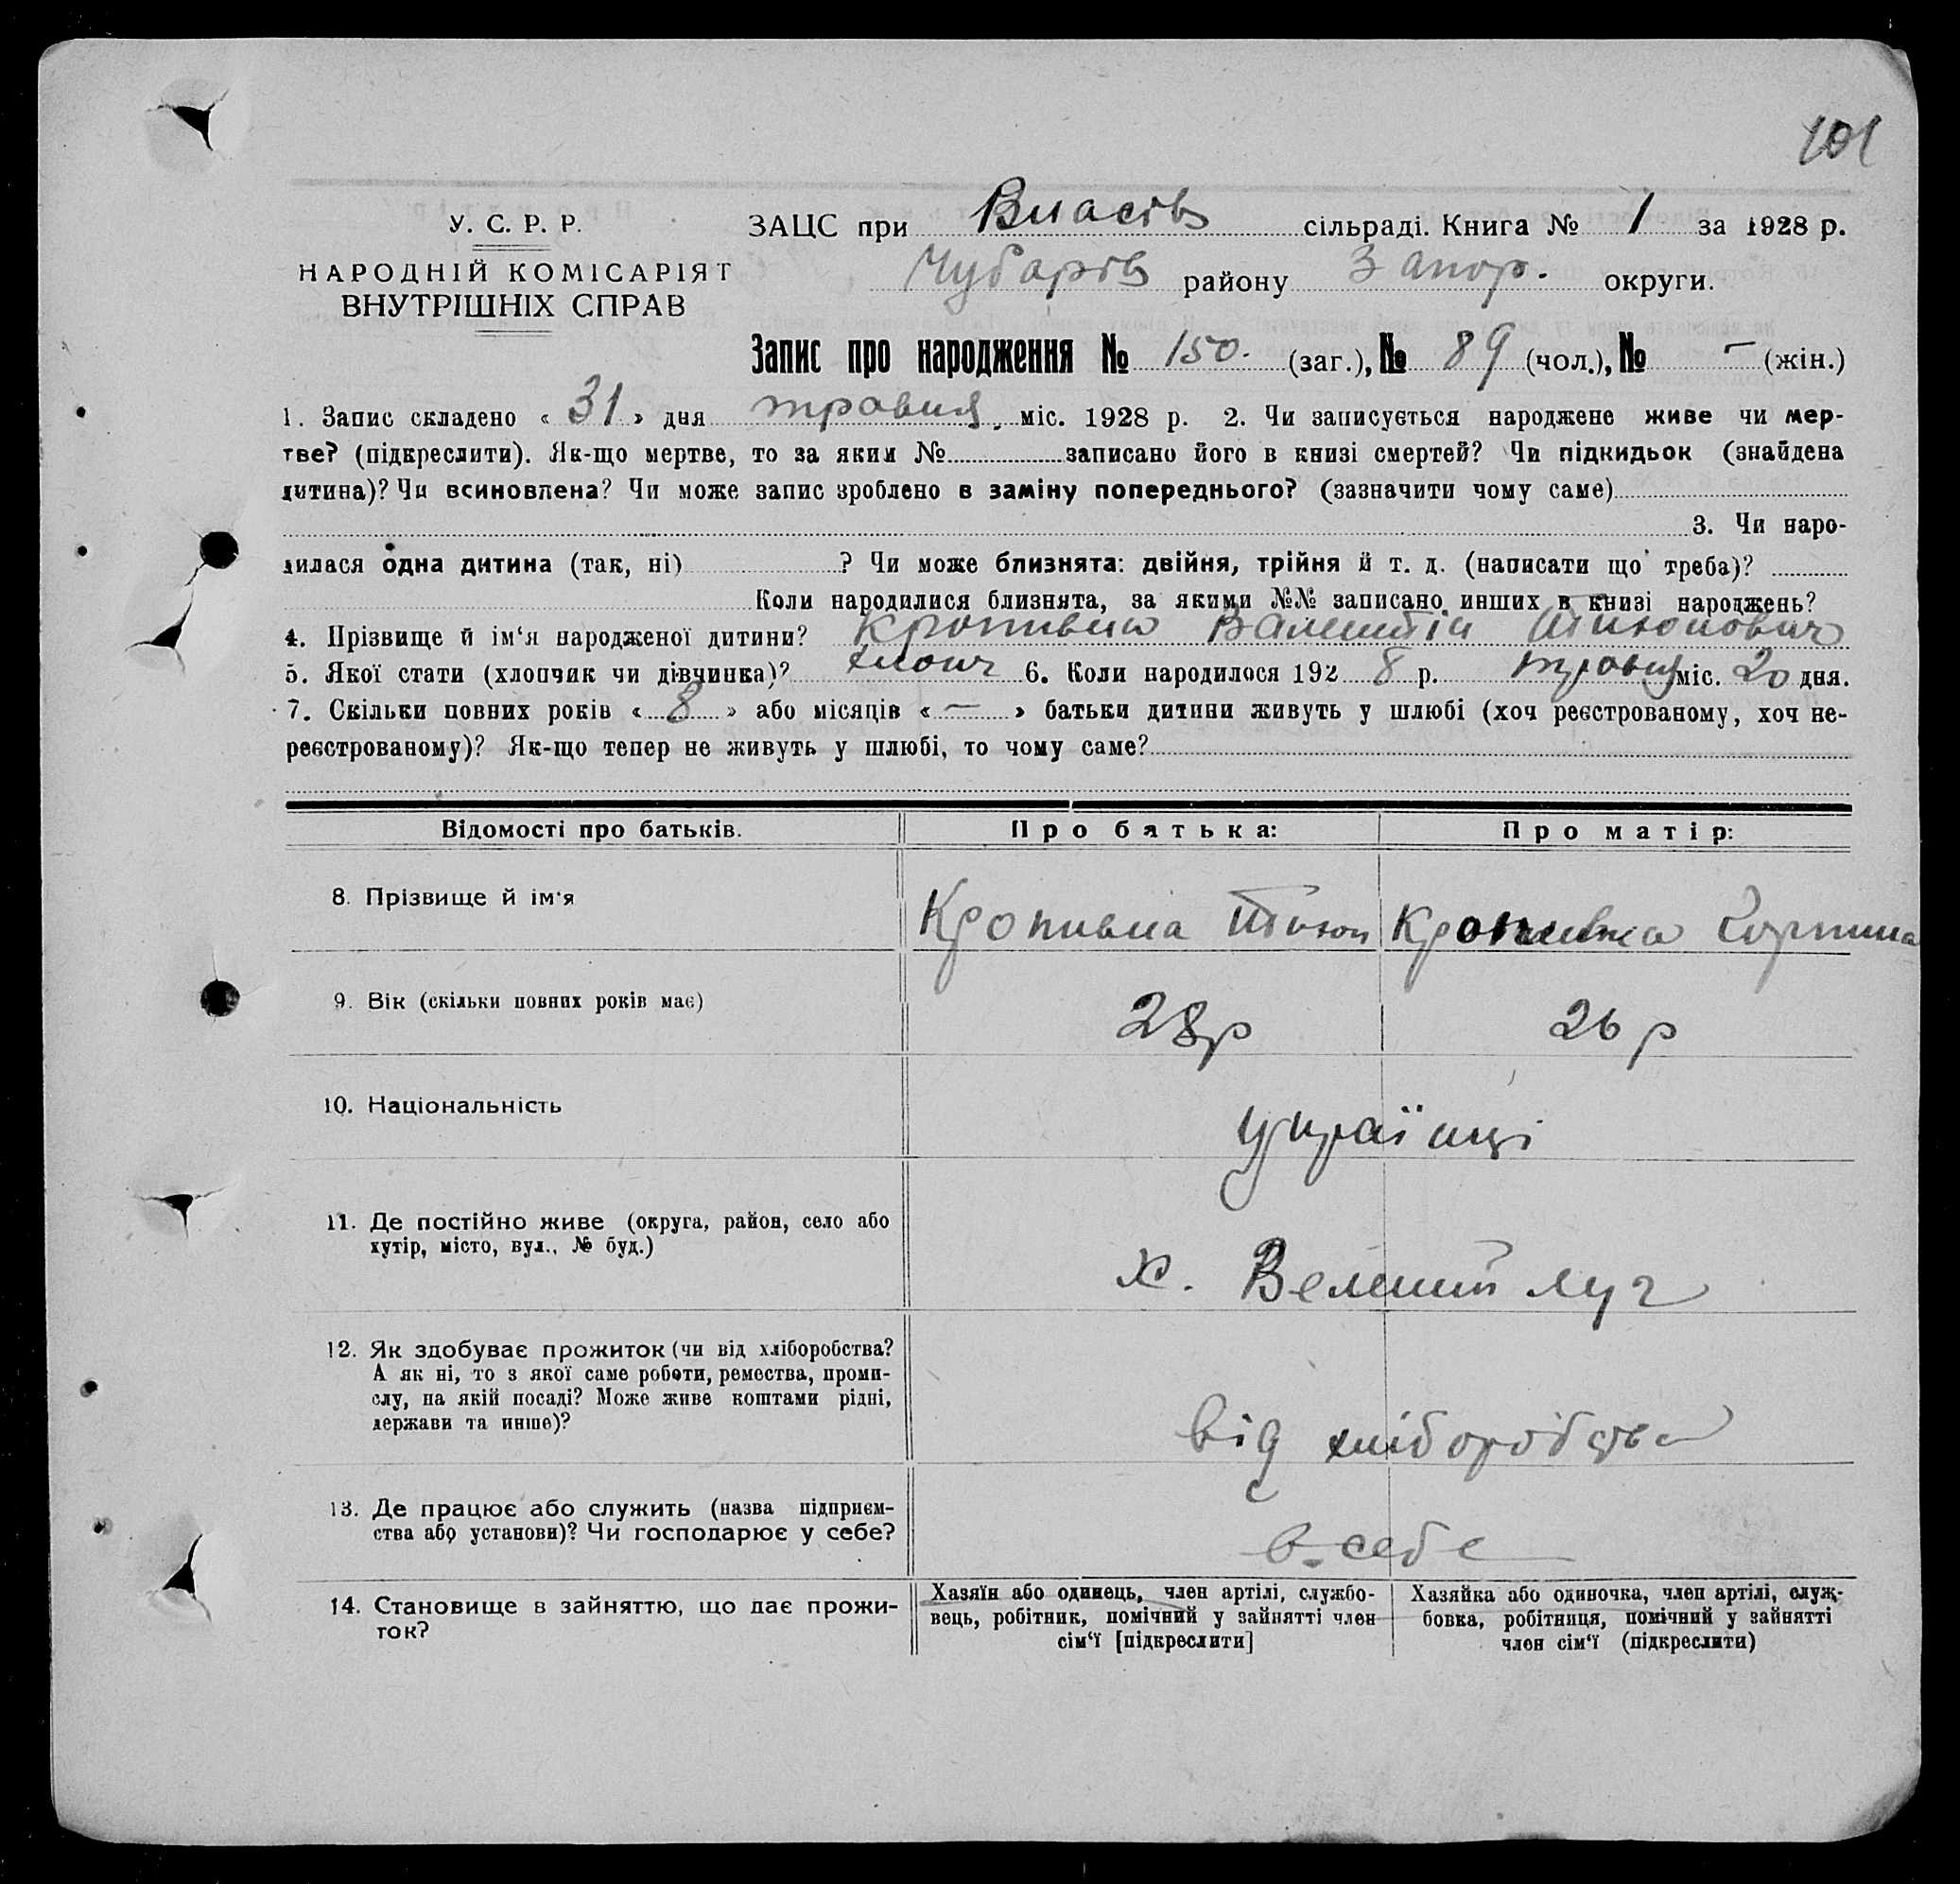 101
У. С. Р. Р.
НАРОДНІЙ КОМІСАРІЯТ
ВНУТРІШНІХ СПРАВ
ЗАЦС при Власівз сільраді. Книга № 1 за 1928 р.
Чубарівз району Запор. округи.
Запис про народження № 150. (заг.), № 89 (чол.), № – (жін.)
1. Запис складено « 31 » дня травня міс. 1928 р. 2. Чи записується народжене живе чи мер-
тве? (підкреслити). Як-що мертве, то за яким № записано його в книзі смертей? Чи підкидьок (знайдена
дитина)? Чи всиновлена? Чи може запис зроблено в заміну попереднього? (зазначити чому саме)
3. Чи наро-
дилася одна дитина (так, ні) ? Чи може близнята: двійня, трійня й т. д. (написати що треба)?
Коли народилися близнята, за якими №№ записано инших в книзі народжень?
4. Прізвище й ім‘я народженої дитини? Кропивна Валентін Тихонович
5. Якої стати (хлопчик чи дівчинка)? хлопч 6. Коли народилося 192 8 р. травня міс. 20 дня.
7. Скільки повних років « 8 » або місяців « – » батьки дитини живуть у шлюбі (хоч реєстрованому, хоч не-
реєстрованому)? Як-що тепер не живуть у шлюбі, то чому саме?
Відомості про батьків. Про батька: Про матір:
8. Прізвище й ім‘я Кропивна Тихон Кропивна
9. Вік (скільки повних років має) 28р 26 р
10. Національність українці
11. Де постійно живе (округа, район, село або
хутір, місто, вул., № буд.)
х. Великий луг
12. Як здобуває прожиток (чи від хліборобства?
А як ні, то з якої саме роботи, ремества, проми-
слу, на якій посаді? Може живе коштами рідні,
держави та инше)?
від хліборобства
13. Де працює або служить (назва підприєм-
ства або установи)? Чи господарює у себе?
в себе
14. Становище в зайняттю, що дає прожи-
ток?
Хазяїн або одинець, член артілі, службо-
вець, робітник, помічний у зайнятті член
сім‘ї [підкреслити]
Хазяйка або одиночка, член артілі, служ-
бовка, робітниця, помічний у зайнятті
член сім‘ї (підкреслити)